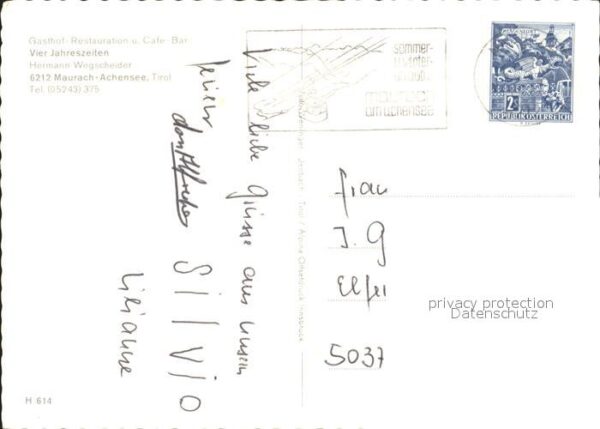 Gasthof-Restauration u. Cafe-Bar
Vier Jahreszeiten
Hermann Wegscheider
6212 Maurach-Achensee, Tirol
Tel. (05243) 375
sommer-
winter-
am achensee
2 S
REPUBLIK ÖSTERREICH
Viele liebe Grüsse aus unsern
Ferien
SILVIO
Lilianne
Jenbach - Tirol / Alpine Offsetdruck Innsbruck
Frau
J. G
5037
privacy protection
Datenschutz
H 614